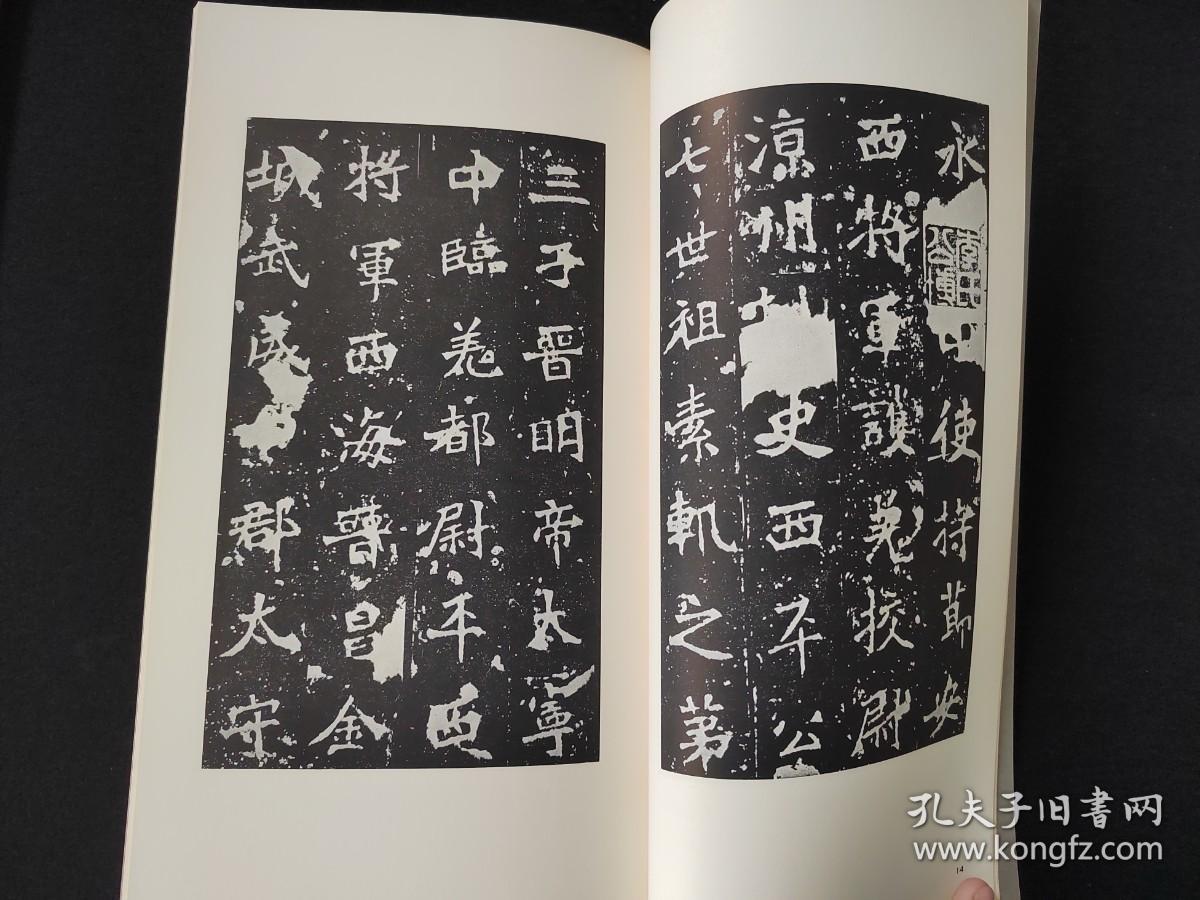 永使持節安
西將軍護羌校尉
涼州史西平公
七世祖素軌之第
三子晉明帝太寧
中臨羌都尉平西
將軍西海晉昌金
城武威郡太守
14
孔夫子旧书网
www.kongfz.com